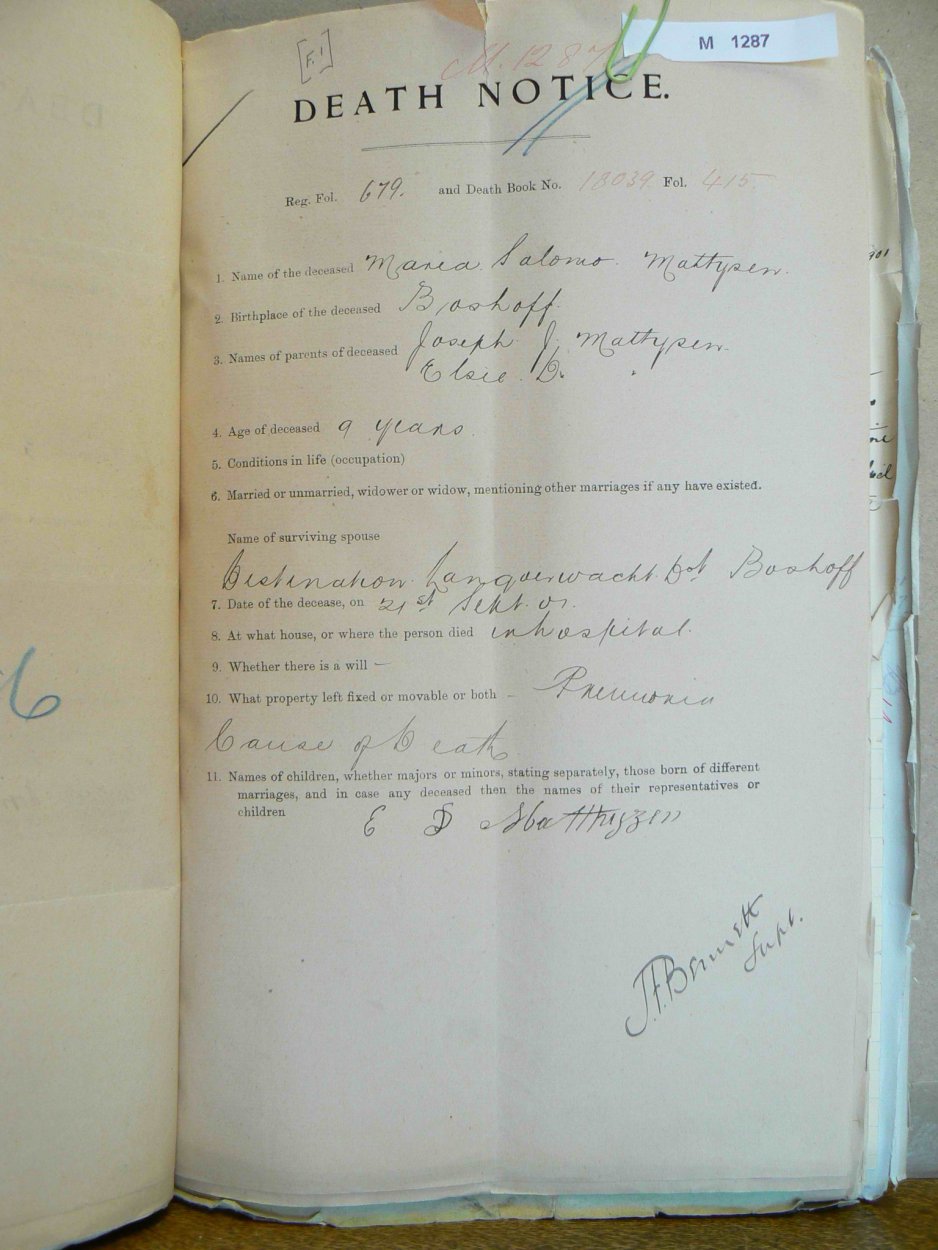 M 1287
[F.1]
M. 1287
DEATH NOTICE.
Reg. Fol. 679. and Death Book No. 18039 Fol. 415.
1. Name of the deceased Maria Salomo Mattysen.
2. Birthplace of the deceased Boshoff.
3. Names of parents of deceased Joseph J. Mattysen.
Elsie. D. "
4. Age of deceased 9 years
5. Conditions in life (occupation)
6. Married or unmarried, widower or widow, mentioning other marriages if any have existed.
Name of surviving spouse
Destination Languerwacht Dst Boshoff
7. Date of the decease, on 21st Sept. 01.
8. At what house, or where the person died in hospital.
9. Whether there is a will —
10. What property left fixed or movable or both – Pneumonia
Cause of Death
11. Names of children, whether majors or minors, stating separately, those born of different
marriages, and in case any deceased then the names of their representatives or
children
E D Matthyzen
J.F. Bennett
Supt.